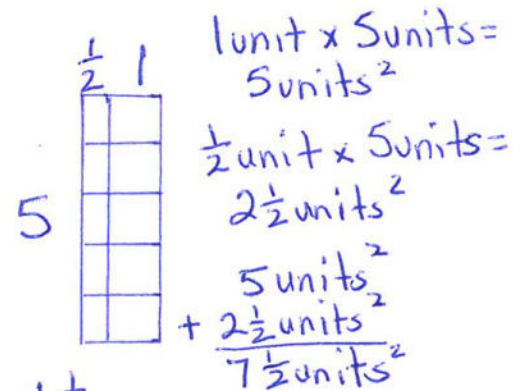 1/2 1
1 unit x 5 units =
5 units²
1/2 unit x 5 units =
2 1/2 units²
5
5 units²
+ 2 1/2 units²
7 1/2 units²